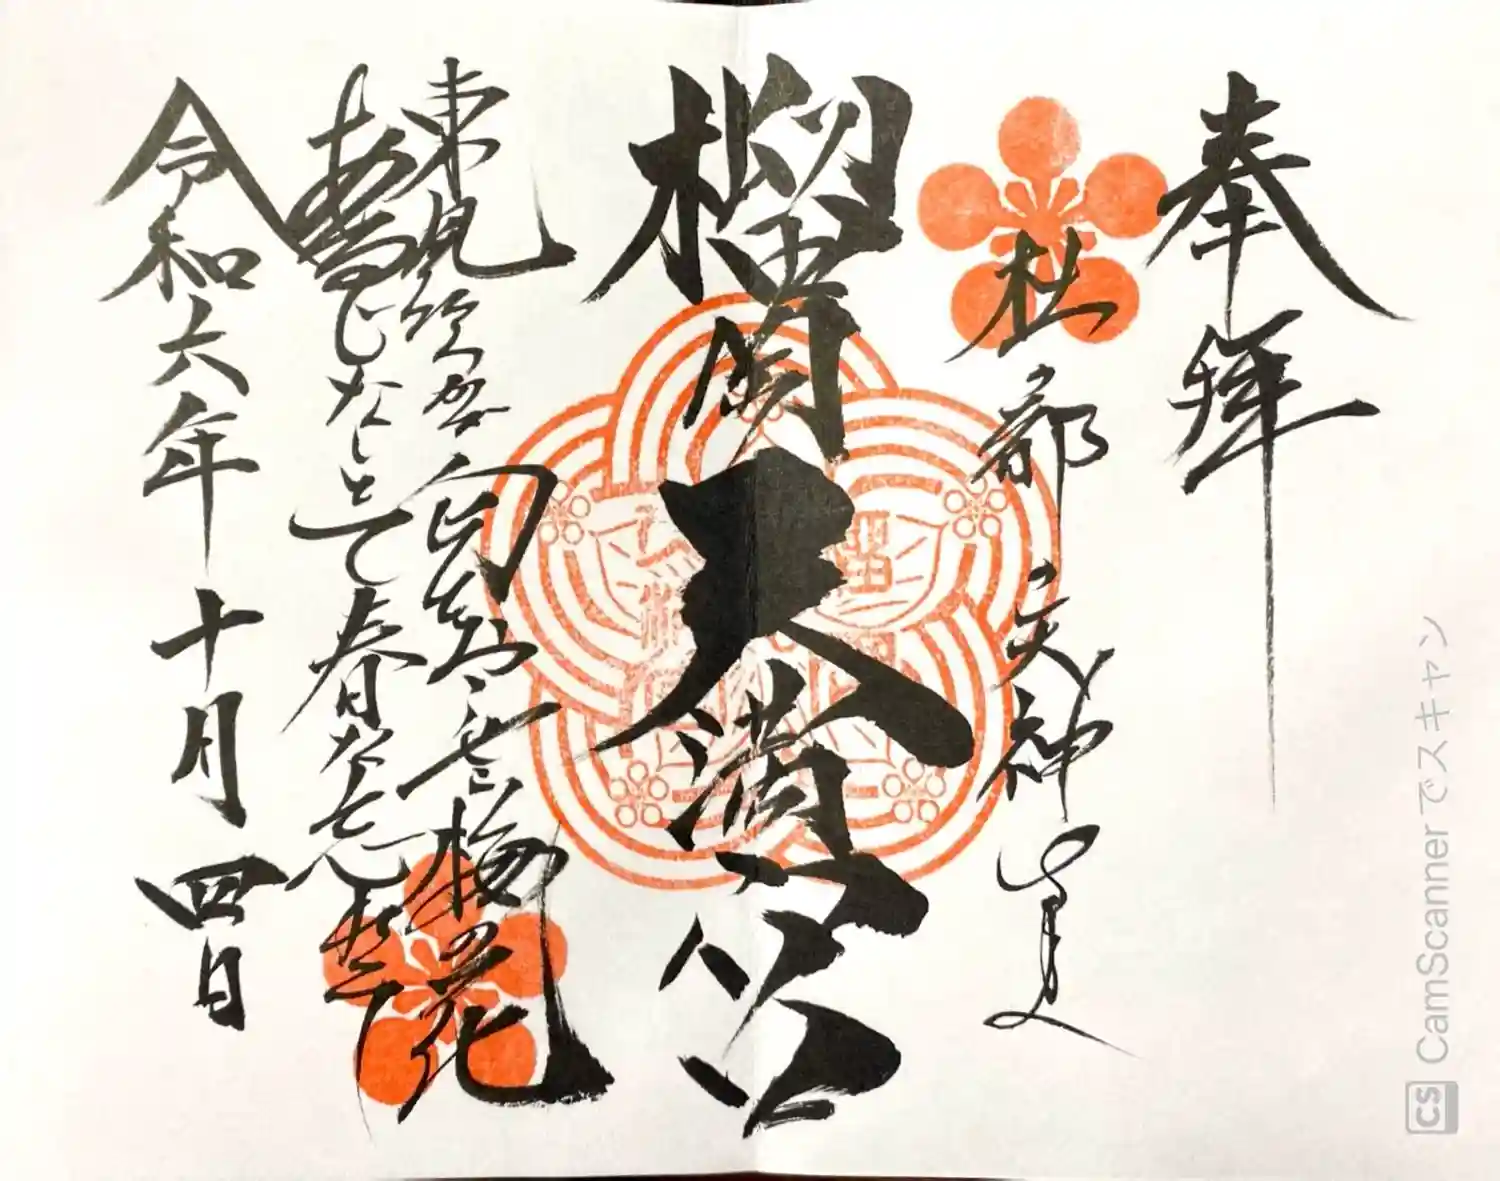 奉拝
杜都 天神
榴岡天満宮
東風吹かば匂ひおこせよ梅の花
あるじなしとて春な忘れそ
令和六年十月四日
CS CamScannerでスキャン